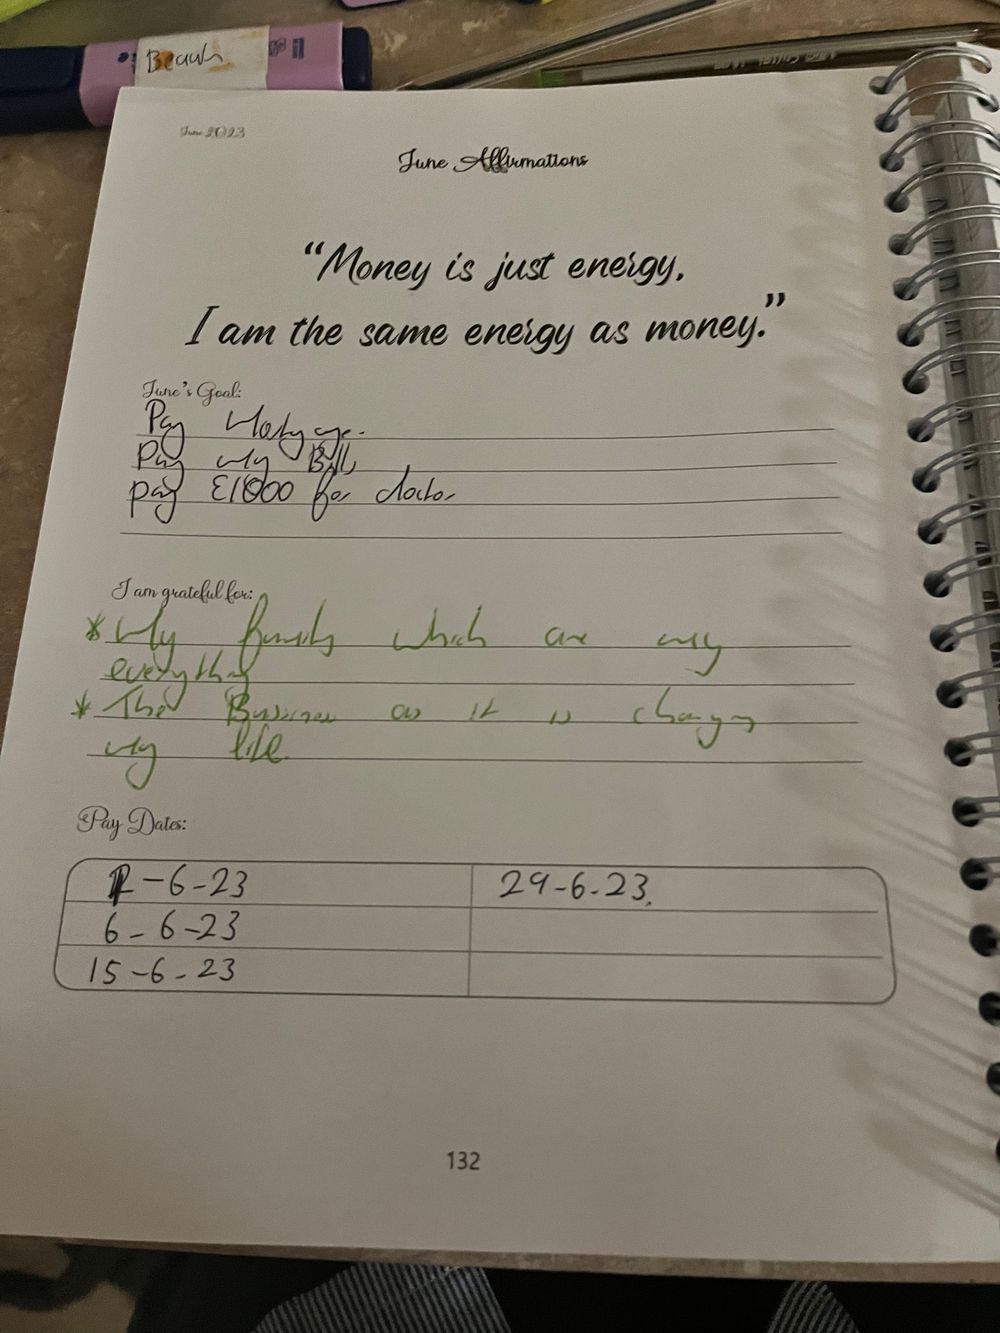 Beauty
June 2023
June Affirmations
“Money is just energy,
I am the same energy as money.”
June's Goal:
Pay Mortgage.
Pay my Bills
Pay £1800 for doctor
I am grateful for:
* My family which are my
everything
* The Business as it is changing
my life.
Pay Dates:
1-6-23
29-6-23.
6-6-23
15-6-23
132